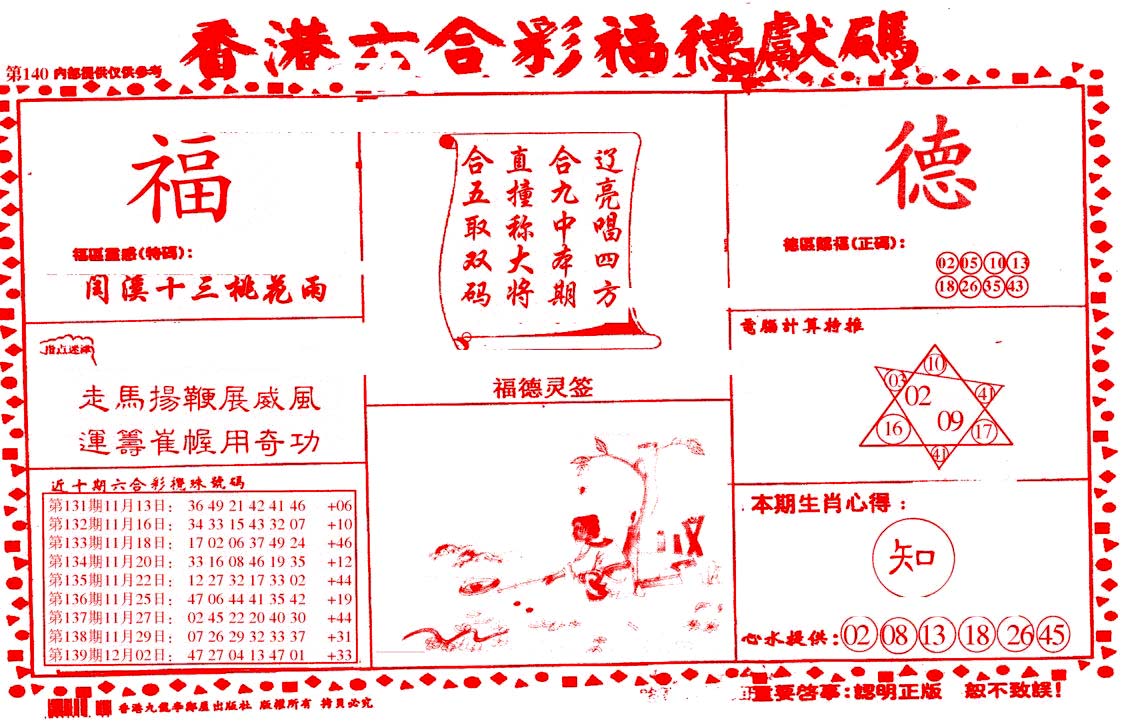 香港六合彩福德獻碼
第140 内部提供仅供参考
福
福區靈感(特碼):
閏溪十三桃花雨
指点迷津
走馬揚鞭展威風
運籌崔幄用奇功
近十期六合彩攪珠號碼
第131期11月13日: 36 49 21 42 41 46 +06
第132期11月16日: 34 33 15 43 32 07 +10
第133期11月18日: 17 02 06 37 49 24 +46
第134期11月20日: 33 16 08 46 19 35 +12
第135期11月22日: 12 27 32 17 33 02 +44
第136期11月25日: 47 06 44 41 35 42 +19
第137期11月27日: 02 45 22 20 40 30 +44
第138期11月29日: 07 26 29 32 33 37 +31
第139期12月02日: 47 27 04 13 47 01 +33
辽亮唱四方
合九中本期
直撞称大将
合五取双码
福德灵签
德
德區賜福(正碼):
02 05 10 13
18 26 35 43
電腦計算特推
10
03
41
02
09
16
17
41
本期生肖心得:
知
心水提供:02 08 13 18 26 45
香港九龍李鄭屋出版社 版權所有 拷貝必究
重要啓事:認明正版 恕不致誤!